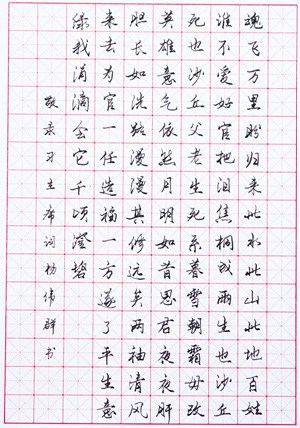 魂飞万里盼归来此水此山此地百姓
谁不爱好官把泪焦桐成雨生也沙丘
死也沙丘父老生死系暮雪朝霜毋改
英雄意气依然月明如昔思君夜夜肝
胆长如洗路漫漫其修远矣两袖清风
来去为官一任造福一方遂了平生意
绿我涓滴会它千顷澄碧
敬录习主席词杨伟群书